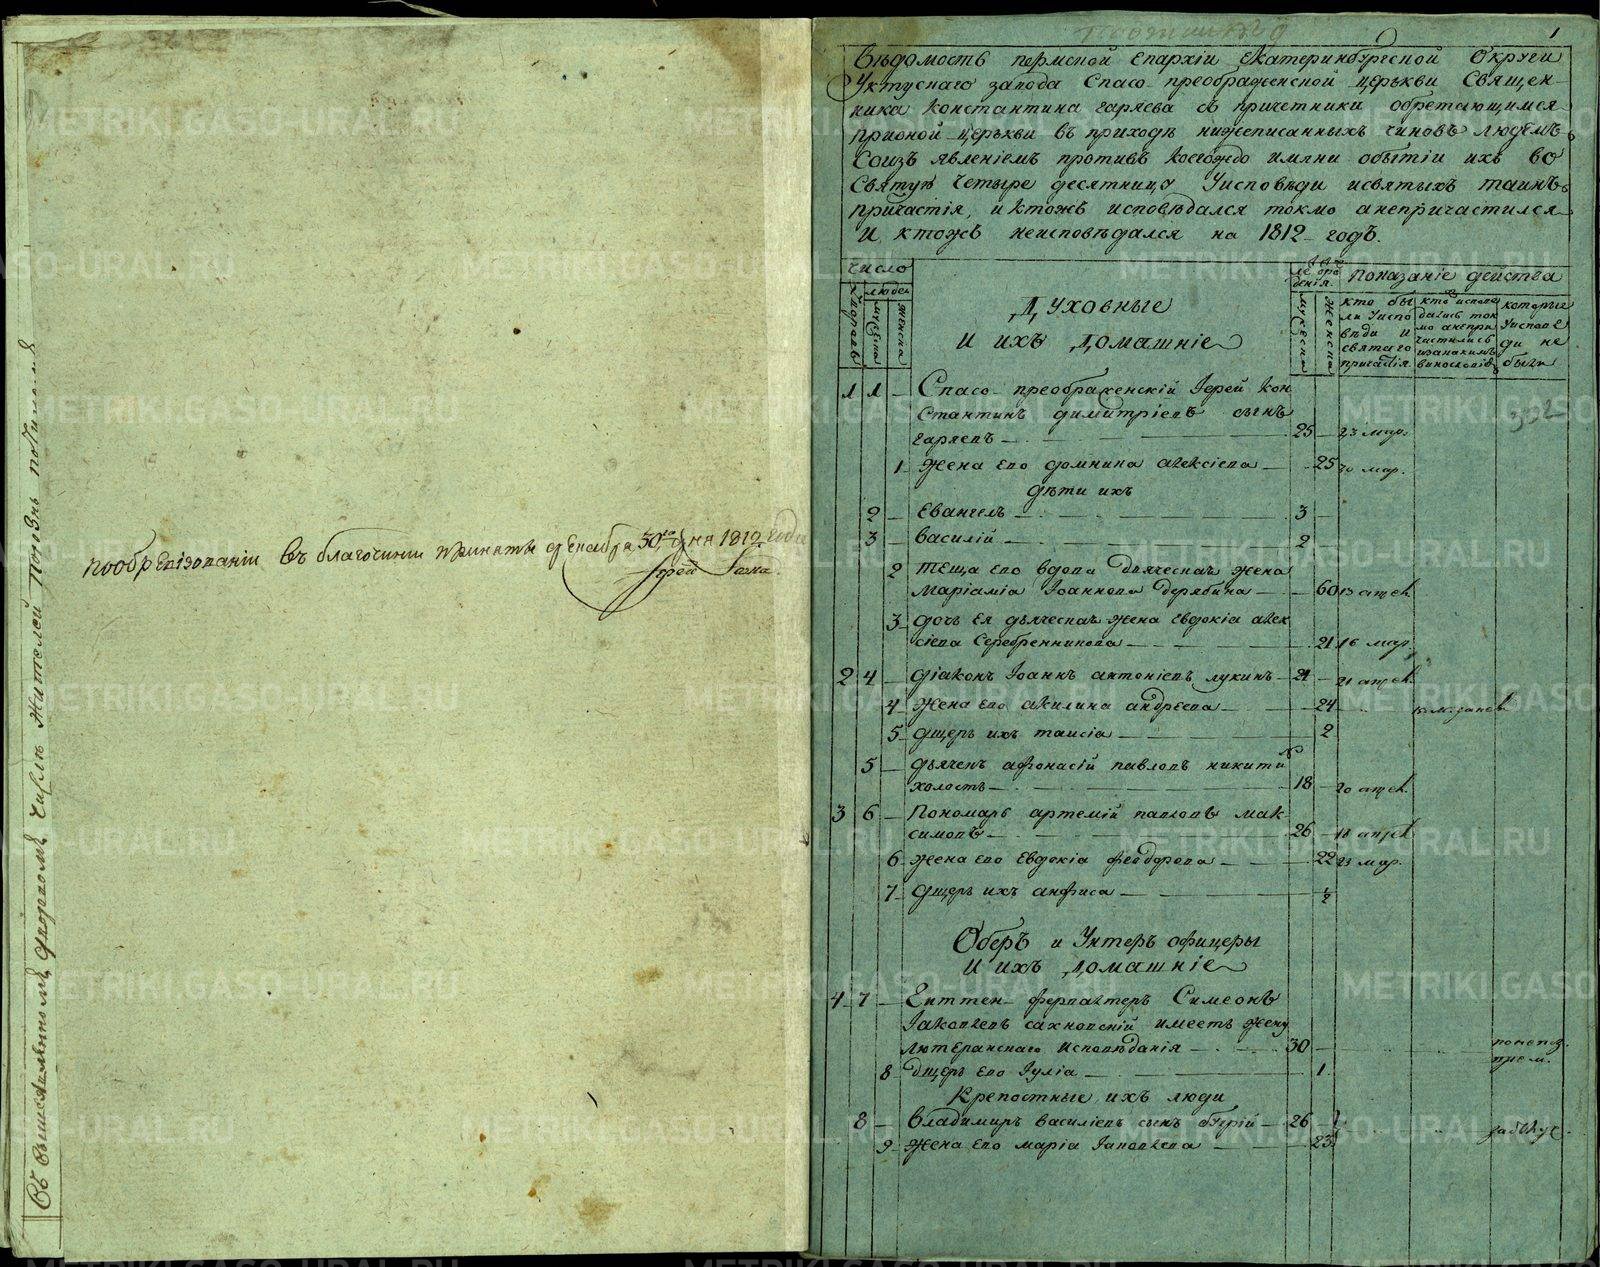 въ вышеписанномъ числѣ жителей
въ благочинии принята декабря 30 дня 1812 года
1
Вѣдомость пермской епархіи екатеринбургской округи
Уктускаго завода Спасо преображенской церькви Священ-
ника константина гаряева съ причетники обретающимся
при оной церькви въ приходѣ нижеписанныхъ чиновъ людемъ
Соизъ явленіемъ противъ коегождо имяни обытіи ихъ во
Святую четыре десятницу Уисповѣди исвятыхъ таинъ
причастія, и ктожъ исповѣдался токмо анепричастился
И ктожъ неисповѣдался на 1812 годъ.
число
людей
дворовъ
мужска
женска
Духовные
И ихъ Домашніе
мужеска
женска
показаніе действа
кто бы
ли Уиспо
вѣди и
святаго
причастія
кто испове
дались ток
мо анепри
частились
которые
Уиспове
ди не
были
1 1 Спасо преображенскій Іерей кон
стантинъ димитріевъ сынъ
гаряевъ 25 23 мар.
1 жена его домнина алексіева 25 30 мар.
дѣти ихъ
2 Евангелъ 3
3 василій 2
2 теща его вдова дьяческая жена
маріамія Іоаннова дерябина 60 13 апрел
3 дочь ея дьяческая жена евдокіа алек
сіева Серебренникова 21 16 мар.
2 4 діаконъ Іоаннъ антоніевъ лукинъ 21 21 апрел
4 жена его акилина андреева 24
5 дщерь ихъ таисіа 2
5 дьячекъ афонасій павловъ никитинъ
холостъ 18 20 апрел.
3 6 Пономарь артемій павловъ мак-
симовъ 26 18 апрел
6 жена его евдокіа феодорова 22 23 мар.
7 дщерь ихъ анфиса
Оберъ и Унтеръ офицеры
И ихъ Домашніе
4 7 фервалтеръ Симеонъ
Іаковлевъ сахновскій имеетъ жену
лютеранскаго исповѣданія 30
8 дщерь его Іуліа 1
Крепостные ихъ люди
8 владимиръ василіевъ сынъ 26
9 жена его маріа Іаковлева 23